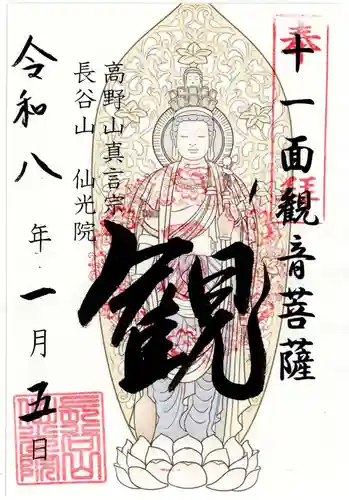 奉拝
十一面観音菩薩
観
高野山真言宗
長谷山 仙光院
令和八年一月五日